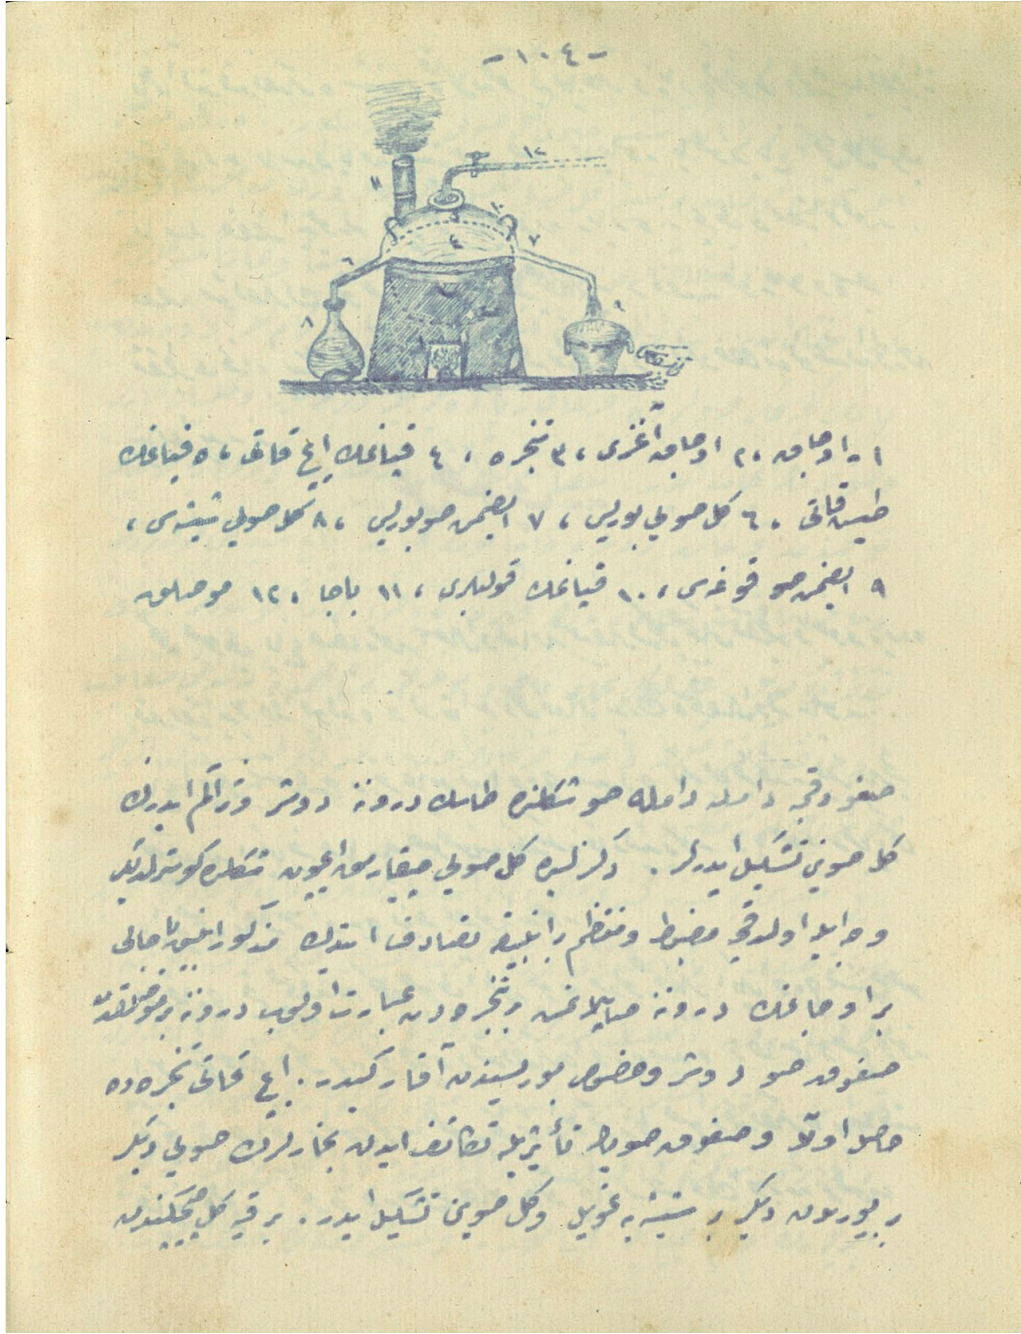 -١٠٤-
١٢
١١
١٠
٥
٤
٧
٦
٩
٨
١- اوجاق، ٢ اوجاق آغزى، ٣ تنجره، ٤ قپاغك ايچ قاتى، ٥ قپاغك
طيش قاتى، ٦ كل صويى بوريسى، ٧ ايصينمش صو بوريسى، ٨ كل صويى شيشه‌سى،
٩ ايصينمش صو قوغه‌سى، ١٠ قپاغك قولپلرى، ١١ باجا، ١٢ موصلق
صغودقجه داملا داملا صو شكلنده طاسك درونه دوشر و تراكم ايدرك
كل صويى تشكيل ايدرلر. دكزليده كل صويى چيقارمق ايچون شكلده كوستريلديكى
وجهله اولدقجه مضبوط و منتظم بر انبيقه تصادف ايتدك. مذكور انبيق باجالى
بر اوجاغك درونه برتنجره‌دن عبارت اولوب درونه بر موصلقدن
صغوق صو دوشر و مخصوص بوريسيندن آقار كيدر. ايچ قاتى تنجره‌ده
حاصل اولان و صغوق صويك تأثيريله تكاثف ايدن بخارلرك صويى ديكر
بر بوريدن ديكر بر شيشه‌يه و كل صويى تشكيل ايدر. بر قيه كل چيچكندن